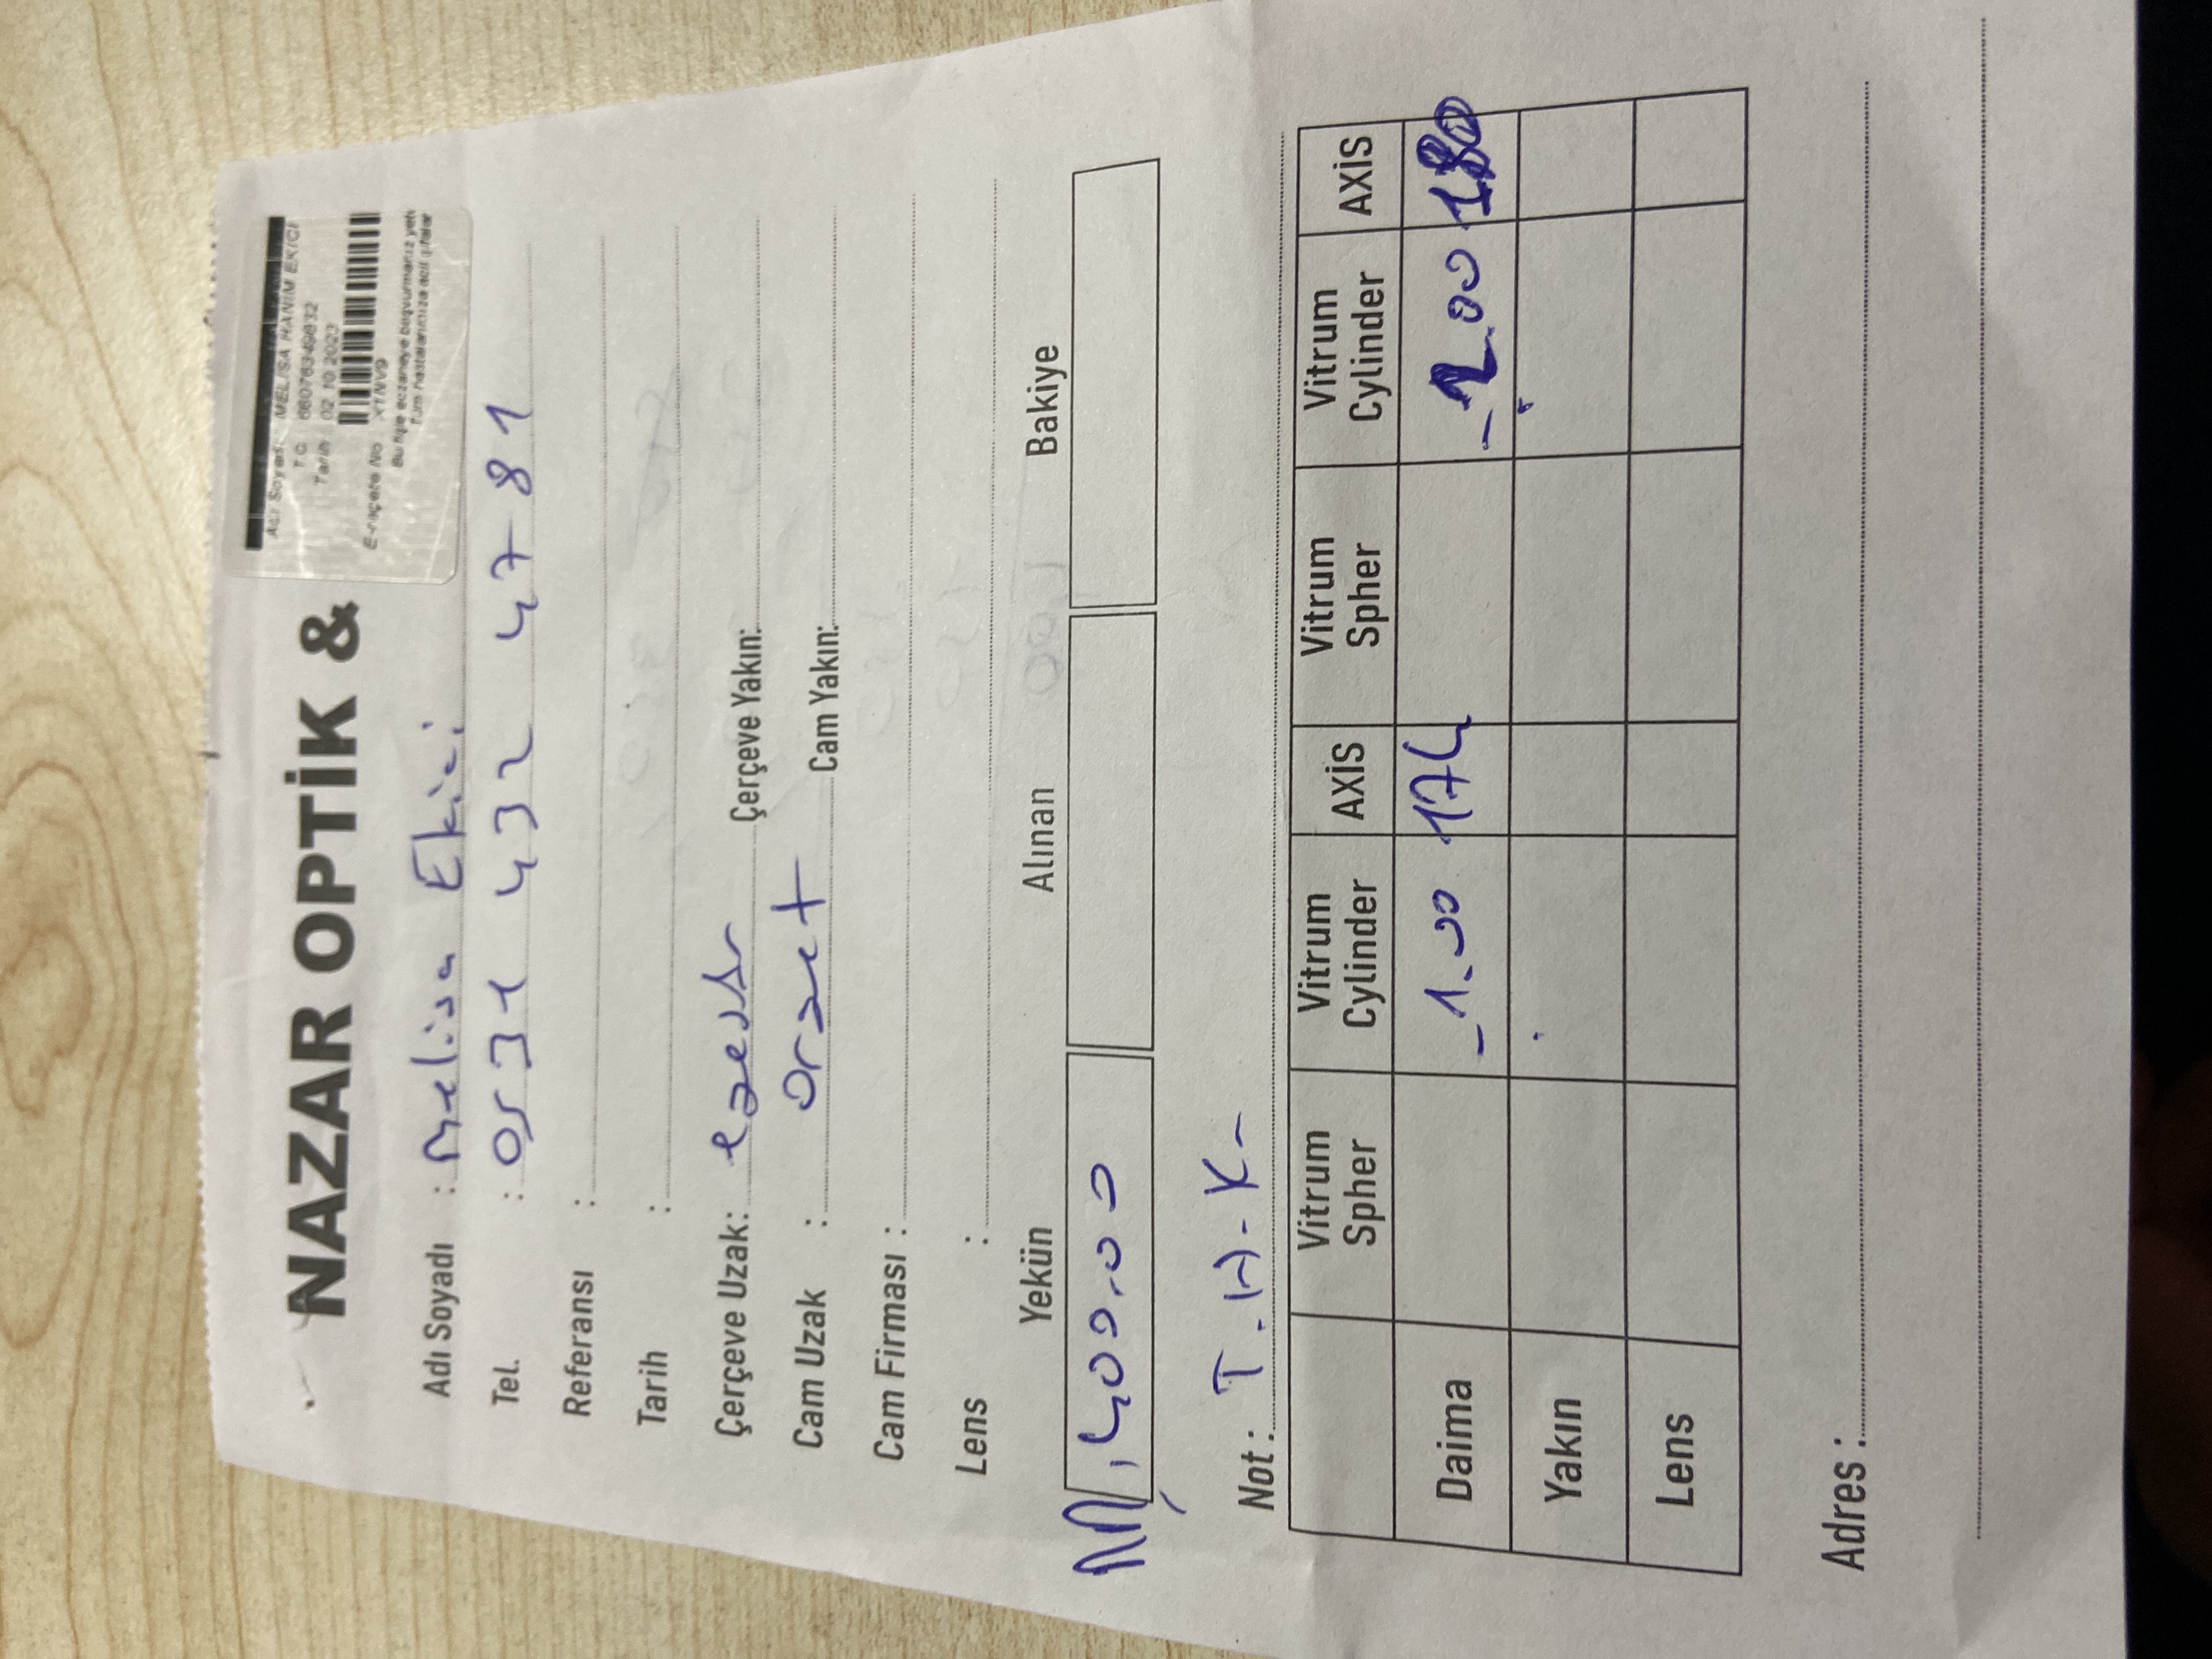 NAZAR OPTİK &
Adı Soyadı: MELİSA HANIM EKİCİ
T.C. 66076349832
Tarih : 02.10.2023
E-reçete No : X1NV9
Bu fişle eczaneye başvurmanız yeti
Tüm hastalarımıza acil şifalar
Adı Soyadı : Melisa Ekici
Tel. : 0531 432 47 81
Referansı :
Tarih :
Çerçeve Uzak: Çerçeve Yakın:
Cam Uzak : Cam Yakın:
Cam Firması :
Lens :
Yekün Alınan Bakiye
400.00
Not : T.H.K.
Vitrum Spher Vitrum Cylinder AXİS Vitrum Spher Vitrum Cylinder AXİS
Daima -1.00 174 -2.00 180
Yakın
Lens
Adres :